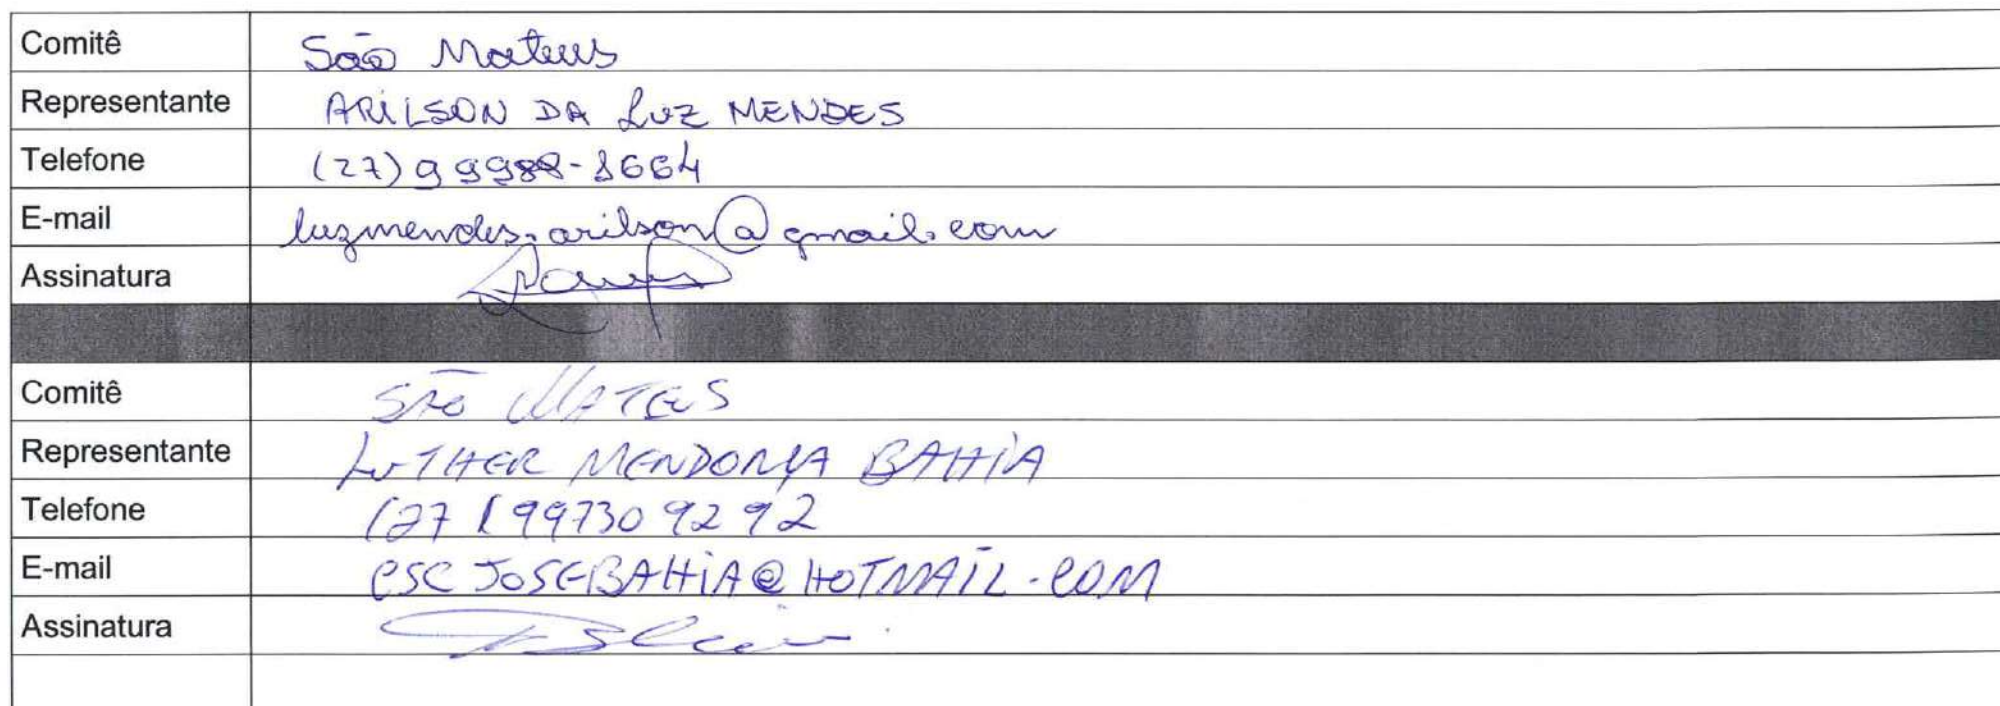 Comitê São Mateus
Representante ARILSON DA LUZ MENDES
Telefone (27) 99988-8664
E-mail luzmendes.arilson@gmail.com
Assinatura
Comitê SÃO MATEUS
Representante LUTHER MENDONÇA BAHIA
Telefone (27) 99730 9292
E-mail ESCJOSEBAHIA@HOTMAIL.COM
Assinatura